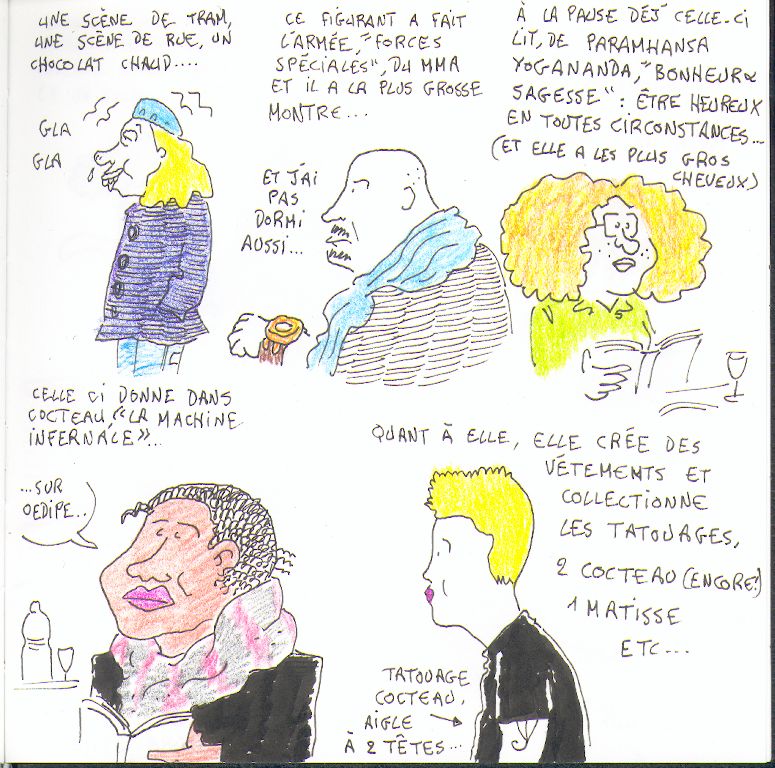 UNE SCÈNE DE TRAM,
UNE SCÈNE DE RUE, UN
CHOCOLAT CHAUD....
GLA
GLA
CE FIGURANT A FAIT
L'ARMÉE, "FORCES
SPÉCIALES", DU MMA
ET IL A LA PLUS GROSSE
MONTRE...
ET J'AI
PAS
DORMI
AUSSI...
À LA PAUSE DÉJ' CELLE-CI
LIT, DE PARAMHANSA
YOGANANDA, "BONHEUR &
SAGESSE" : ÊTRE HEUREUX
EN TOUTES CIRCONSTANCES...
(ET ELLE A LES PLUS GROS
CHEVEUX)
CELLE CI DONNE DANS
COCTEAU, "LA MACHINE
INFERNALE"...
...SUR
OEDIPE..
QUANT À ELLE, ELLE CRÉE DES
VÉTEMENTS ET
COLLECTIONNE
LES TATOUAGES,
2 COCTEAU (ENCORE!)
1 MATISSE
ETC...
TATOUAGE
COCTEAU,
AIGLE
À 2 TÊTES...